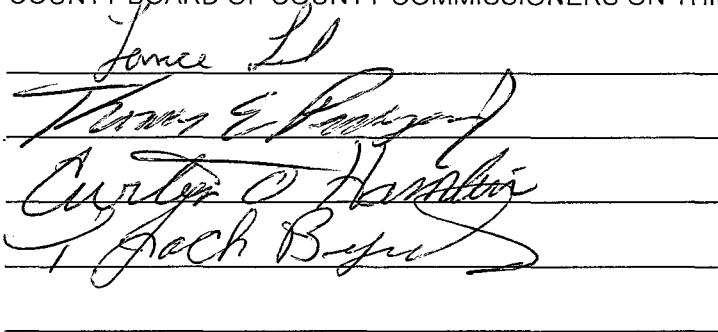 COUNTY BOARD OF COUNTY COMMISSIONERS ON THI
Lance
Thomas E
Curtis O Hamlin
Zach Byrd